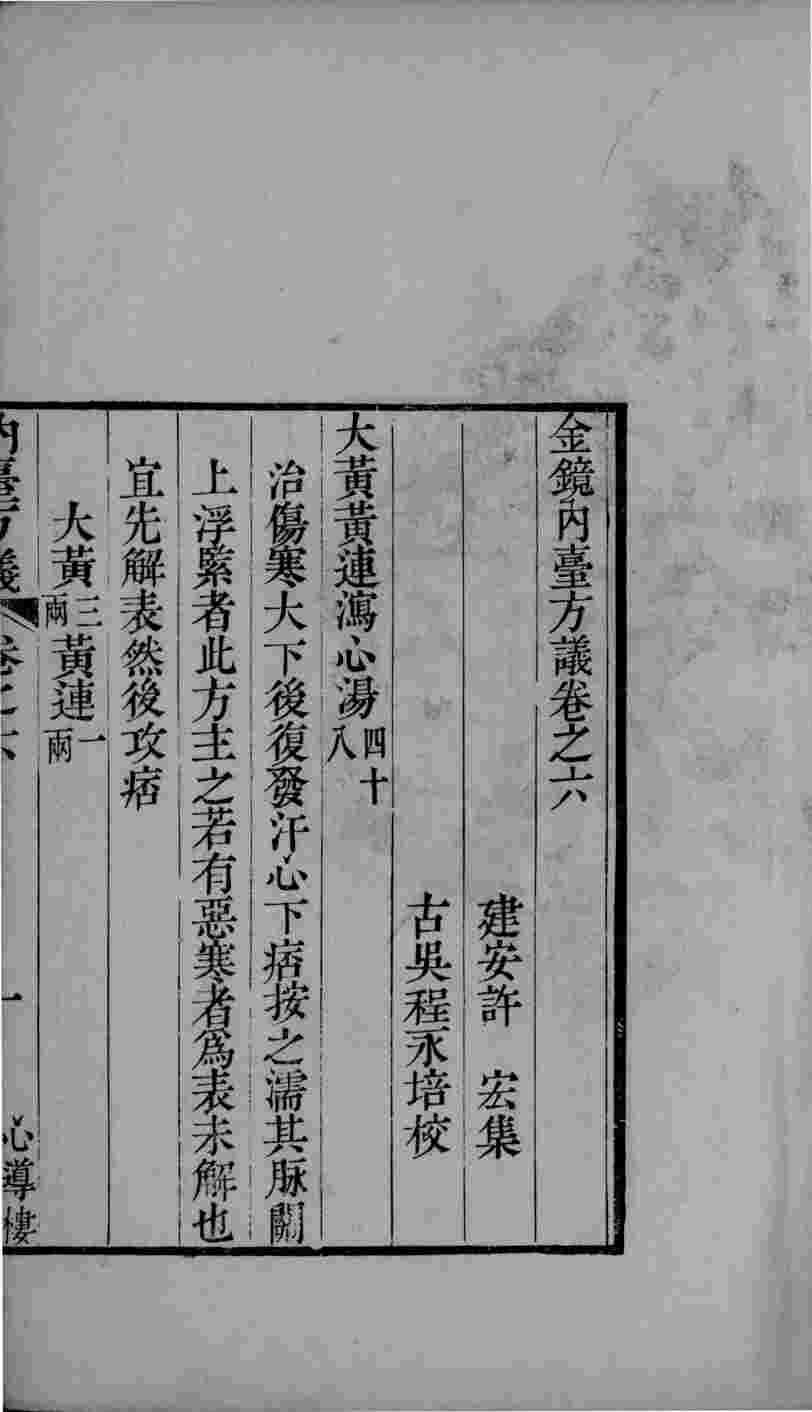 金鏡內臺方議卷之六
建安許　宏集
古吳程永培校
大黃黃連瀉心湯四十八
治傷寒大下後復發汗心下痞按之濡其脉關
上浮緊者此方主之若有惡寒者爲表未解也
宜先解表然後攻痞
大黃三兩黃連一兩
內臺方議　卷之六　一　心導樓